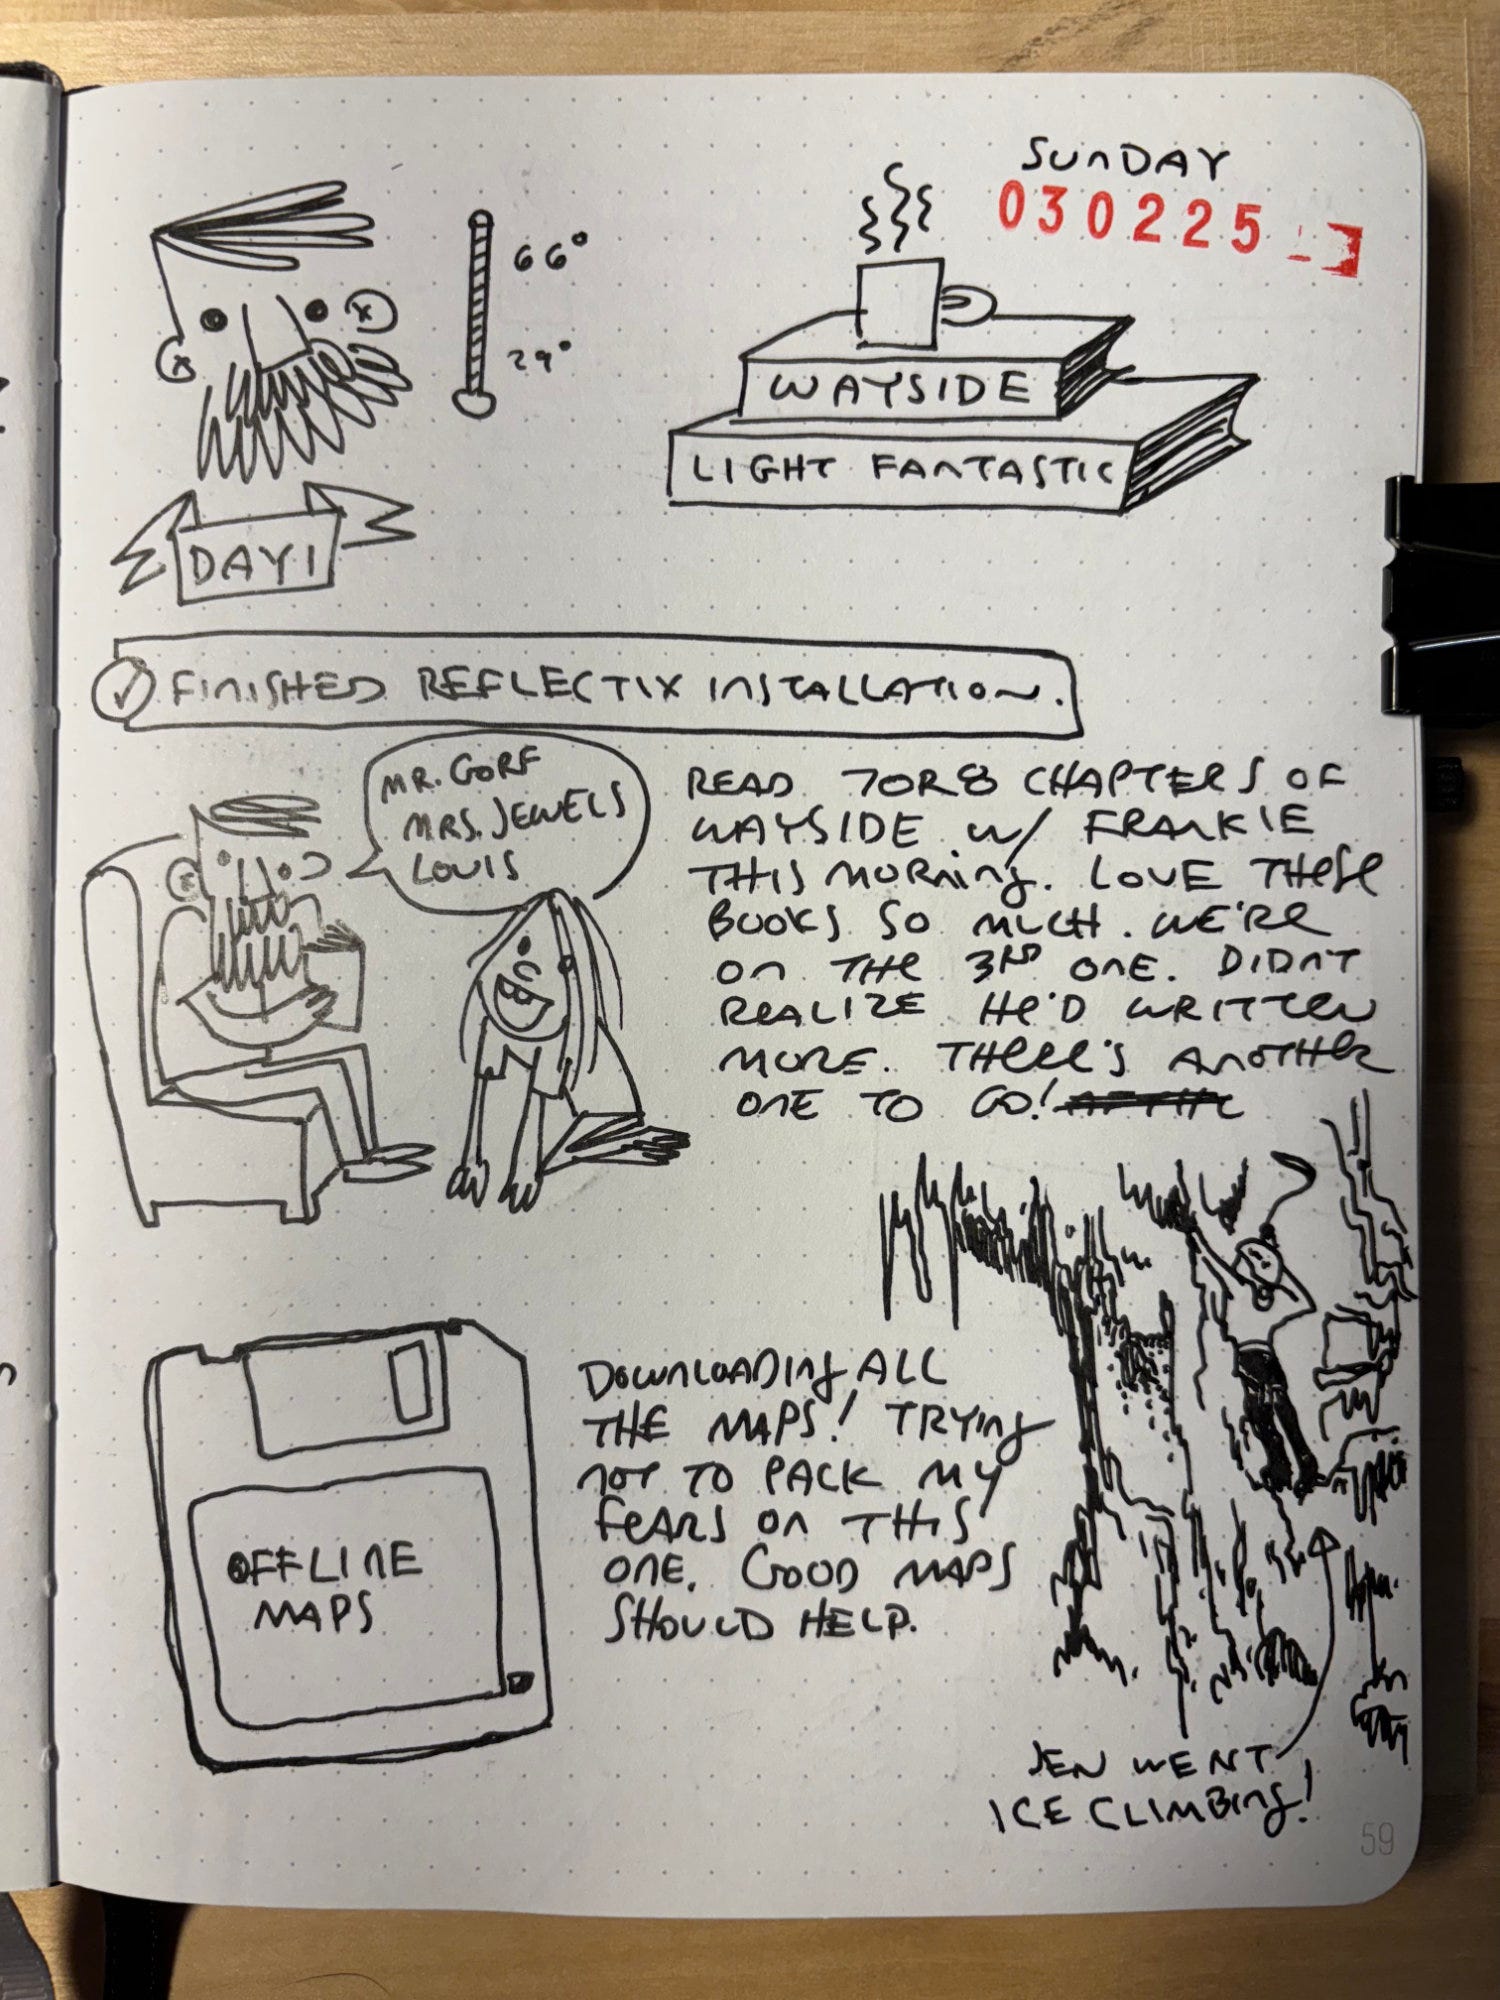 SUNDAY
030225
66°
29°
WAYSIDE
LIGHT FANTASTIC
DAY 1
FINISHED REFLECTIX INSTALLATION.
MR. GORF
MRS. JEWELS
LOUIS
READ 7 OR 8 CHAPTERS OF
WAYSIDE W/ FRANKIE
THIS MORNING. LOVE THESE
BOOKS SO MUCH. WE'RE
ON THE 3RD ONE. DIDN'T
REALIZE HE'D WRITTEN
MORE. THERE'S ANOTHER
ONE TO GO!
DOWNLOADING ALL
THE MAPS! TRYING
NOT TO PACK MY
FEARS ON THIS
ONE. GOOD MAPS
SHOULD HELP.
OFFLINE
MAPS
JEN WENT
ICE CLIMBING!
59